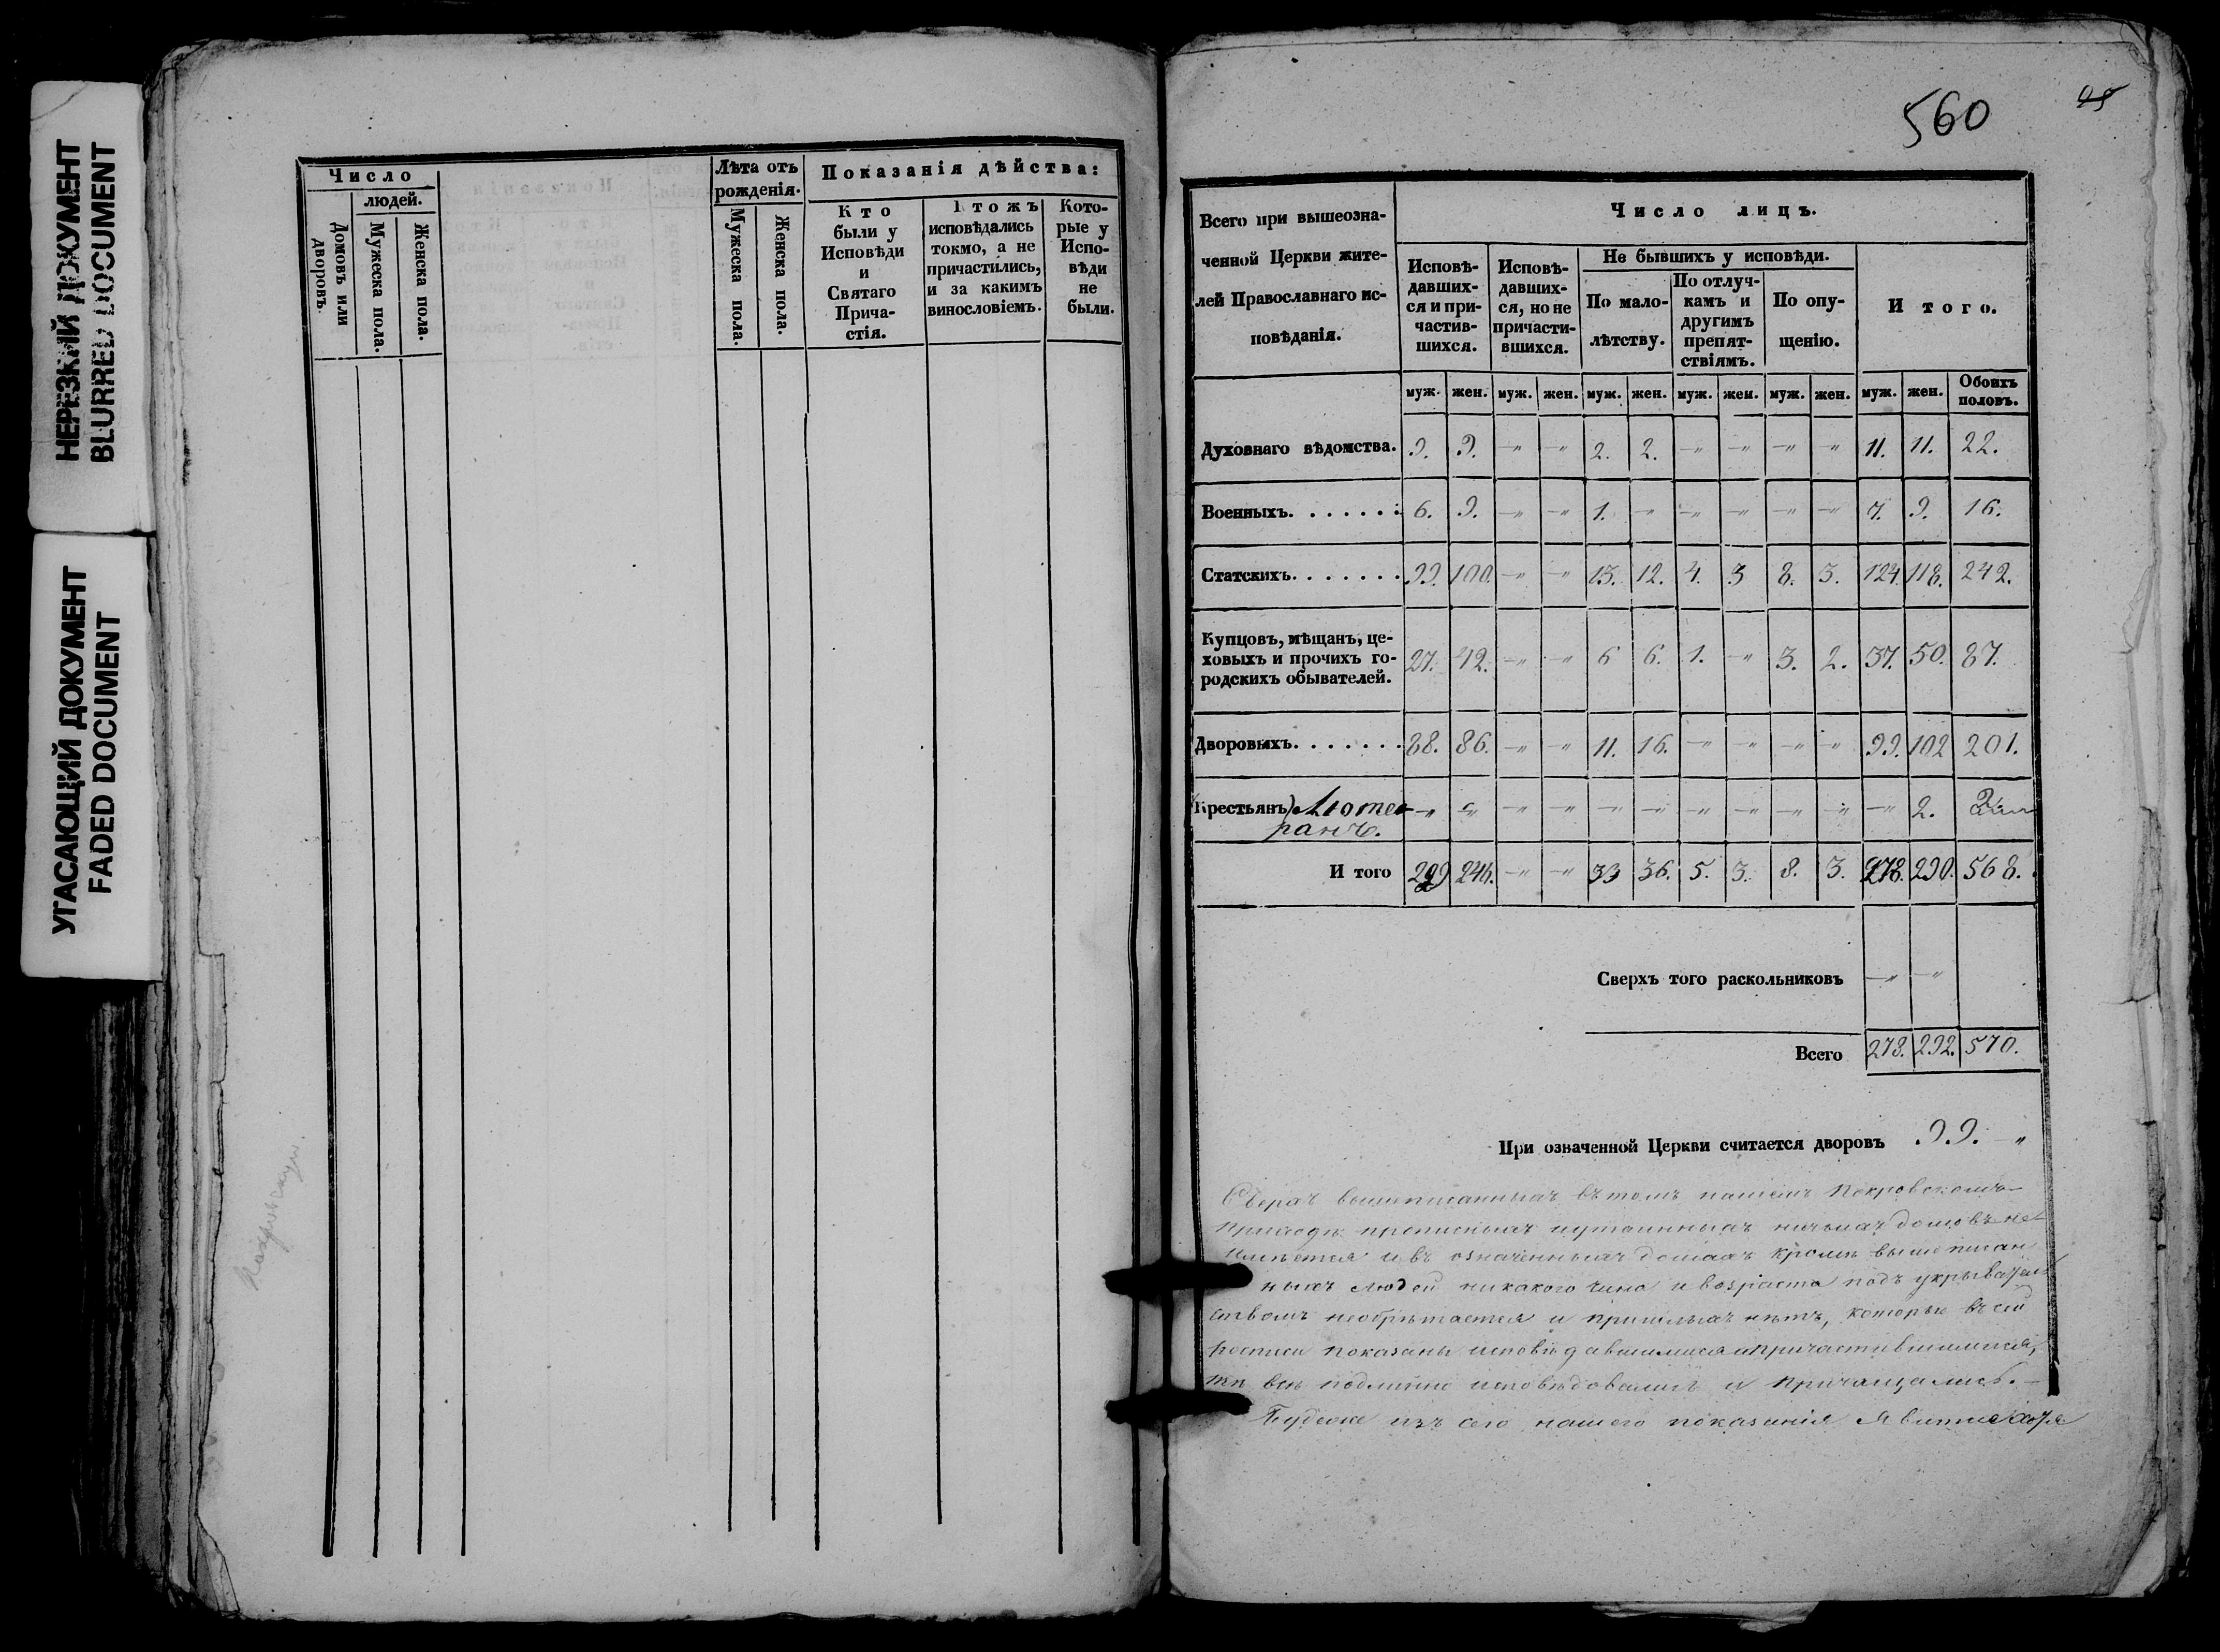 НЕРЕЗКИЙ ДОКУМЕНТ
BLURRED DOCUMENT
УГАСАЮЩИЙ ДОКУМЕНТ
FADED DOCUMENT
Число
людей.
Домовъ или дворовъ.
Мужеска пола.
Женска пола.
Лѣта отъ
рожденія.
Мужеска пола.
Женска пола.
Показанія дѣйства:
Кто
были у
Исповѣди
и
Святаго
Прича-
стія.
І тожъ
исповѣдались
токмо, а не
причастились,
и за какимъ
винословіемъ.
Кото-
рые у
Испо-
вѣди
не
были.
560
Всего при вышеозна-
ченной Церкви жите-
лей Православнаго ис-
повѣданія.
Число лицъ.
Исповѣ-
давших-
ся и при-
частив-
шихся.
Исповѣ-
давших-
ся, но не
причасти-
вшихся.
Не бывшихъ у исповѣди.
По мало-
лѣтству.
По отлуч-
камъ и
другимъ
препят-
ствіямъ.
По опу-
щенію.
И того.
муж. жен. муж. жен. муж. жен. муж. жен. муж. жен. муж. жен. Обоихъ половъ.
Духовнаго вѣдомства. 9. 9. —„ —„ 2. 2. —„ —„ —„ —„ 11. 11. 22.
Военныхъ. . . . . . . 6. 9. —„ —„ 1. —„ —„ —„ —„ —„ 7. 9. 16.
Статскихъ. . . . . . . 99. 100. —„ —„ 13. 12. 4. 3 8. 3. 124. 118. 242.
Купцовъ, мѣщанъ, це-
ховыхъ и прочихъ го-
родскихъ обывателей. 27. 42. —„ —„ 6 6. 1. —„ 3. 2. 37. 50. 87.
Дворовыхъ. . . . . . . 88. 86. —„ —„ 11. 16. —„ —„ —„ —„ 99. 102 201.
(Крестьянъ) Люте-
ранъ. —„ —„ —„ —„ —„ —„ —„ —„ —„ —„ —„ 2. 2.
И того 229 246. —„ —„ 33 36. 5. 3. 8. 3. 278. 290. 568.
Сверхъ того раскольниковъ —„ —„
Всего 278. 292. 570.
При означенной Церкви считается дворовъ 99. — „
Сверхъ вышеписанныхъ въ томъ нашемъ Покровскомъ
приходѣ прописныхъ и утаенныхъ ничьихъ домовъ не
имѣется и въ означенныхъ домахъ кромѣ вышеписан
ныхъ людей никакого чина и возраста подъ укрыватель
ствомъ необрѣтается и пришлыхъ нѣтъ, которые въ сей
росписи показаны исповѣдавшимися и причастившимися,
тѣ всѣ подлинно исповѣдовались и причащались. —
Будеже изъ сего нашего показанія явится хотя